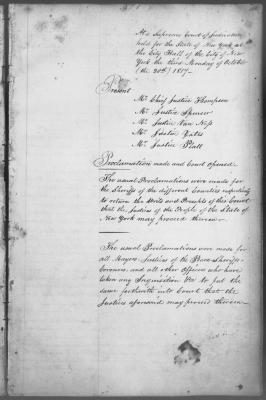 At a Supreme Court of Judicature
held for the State of New York at
the City Hall of the City of New
York the third Monday of October
(the 20th) 1817.
Present
Mr Chief Justice Thompson
Mr Justice Spencer
Mr Justice Van Ness
Mr Justice Yates
Mr Justice Platt
Proclamation made and Court opened.
The usual Proclamations were made for
the Sheriffs of the different Counties respectively
to return the Writs and Precepts of this Court
that the Justices of the People of the State of
New York may proceed thereon.
The usual Proclamations were made for
all Mayors, Justices of the Peace, Sheriffs
Coroners, and all other Officers who have
taken any Inquisition &c to put the
same forthwith into Court that the
Justices aforesaid may proceed thereon